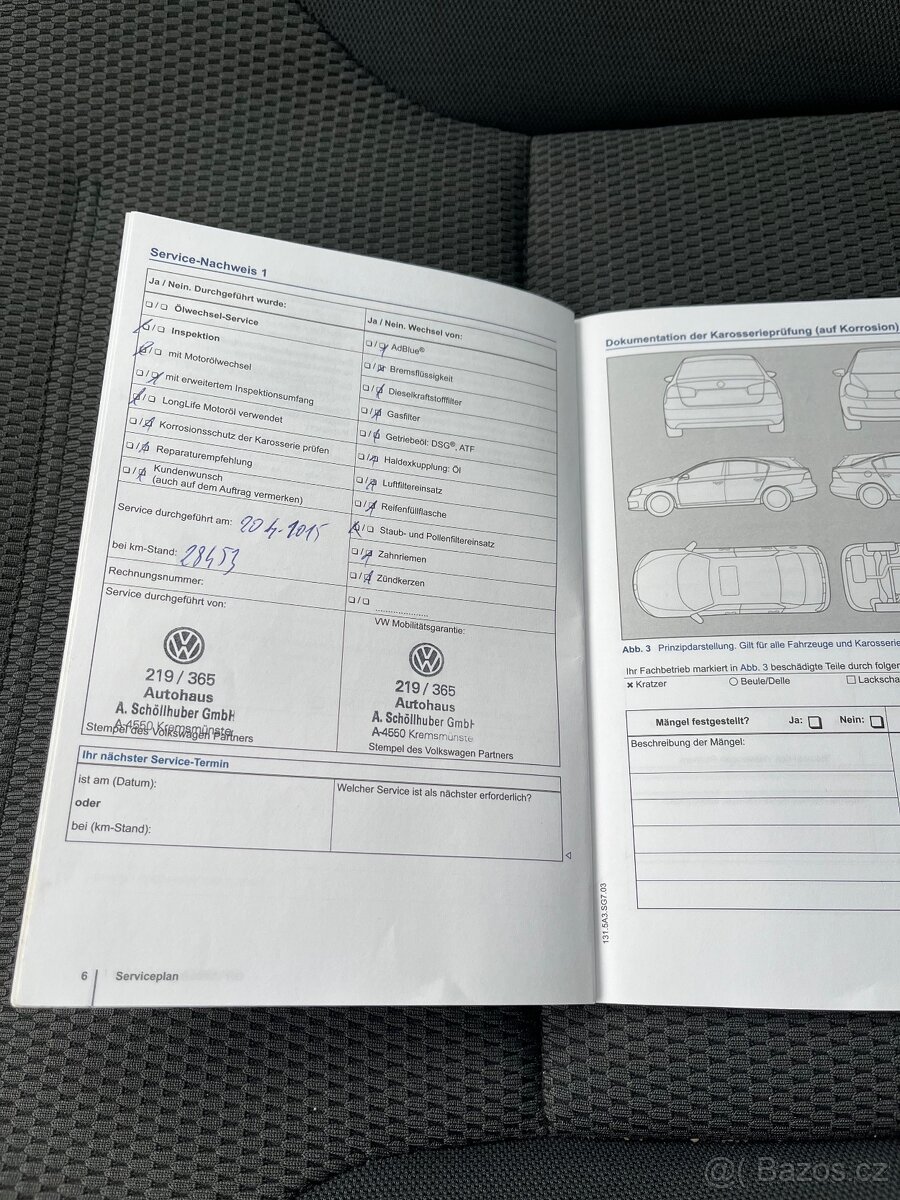 Service-Nachweis 1
Ja / Nein. Durchgeführt wurde:
Ölwechsel-Service
Inspektion
mit Motorölwechsel
mit erweitertem Inspektionsumfang
LongLife Motoröl verwendet
Korrosionsschutz der Karosserie prüfen
Reparaturempfehlung
Kundenwunsch
(auch auf dem Auftrag vermerken)
Service durchgeführt am: 20.4.2015
bei km-Stand: 28453
Rechnungsnummer:
Service durchgeführt von:
219 / 365
Autohaus
A. Schöllhuber GmbH
A-4550 Kremsmünster
Stempel des Volkswagen Partners
Ja / Nein. Wechsel von:
AdBlue®
Bremsflüssigkeit
Dieselkraftstofffilter
Gasfilter
Getriebeöl: DSG®, ATF
Haldexkupplung: Öl
Luftfiltereinsatz
Reifenfüllflasche
Staub- und Pollenfiltereinsatz
Zahnriemen
Zündkerzen
VW Mobilitätsgarantie:
219 / 365
Autohaus
A. Schöllhuber GmbH
A-4550 Kremsmünste
Stempel des Volkswagen Partners
Ihr nächster Service-Termin
ist am (Datum):
oder
bei (km-Stand):
Welcher Service ist als nächster erforderlich?
6 Serviceplan
Dokumentation der Karosserieprüfung (auf Korrosion)
Abb. 3 Prinzipdarstellung. Gilt für alle Fahrzeuge und Karosserie
Ihr Fachbetrieb markiert in Abb. 3 beschädigte Teile durch folgen
Kratzer Beule/Delle Lackscha
Mängel festgestellt? Ja: Nein:
Beschreibung der Mängel:
131.5A3.SG7.03
@( Bazos.cz